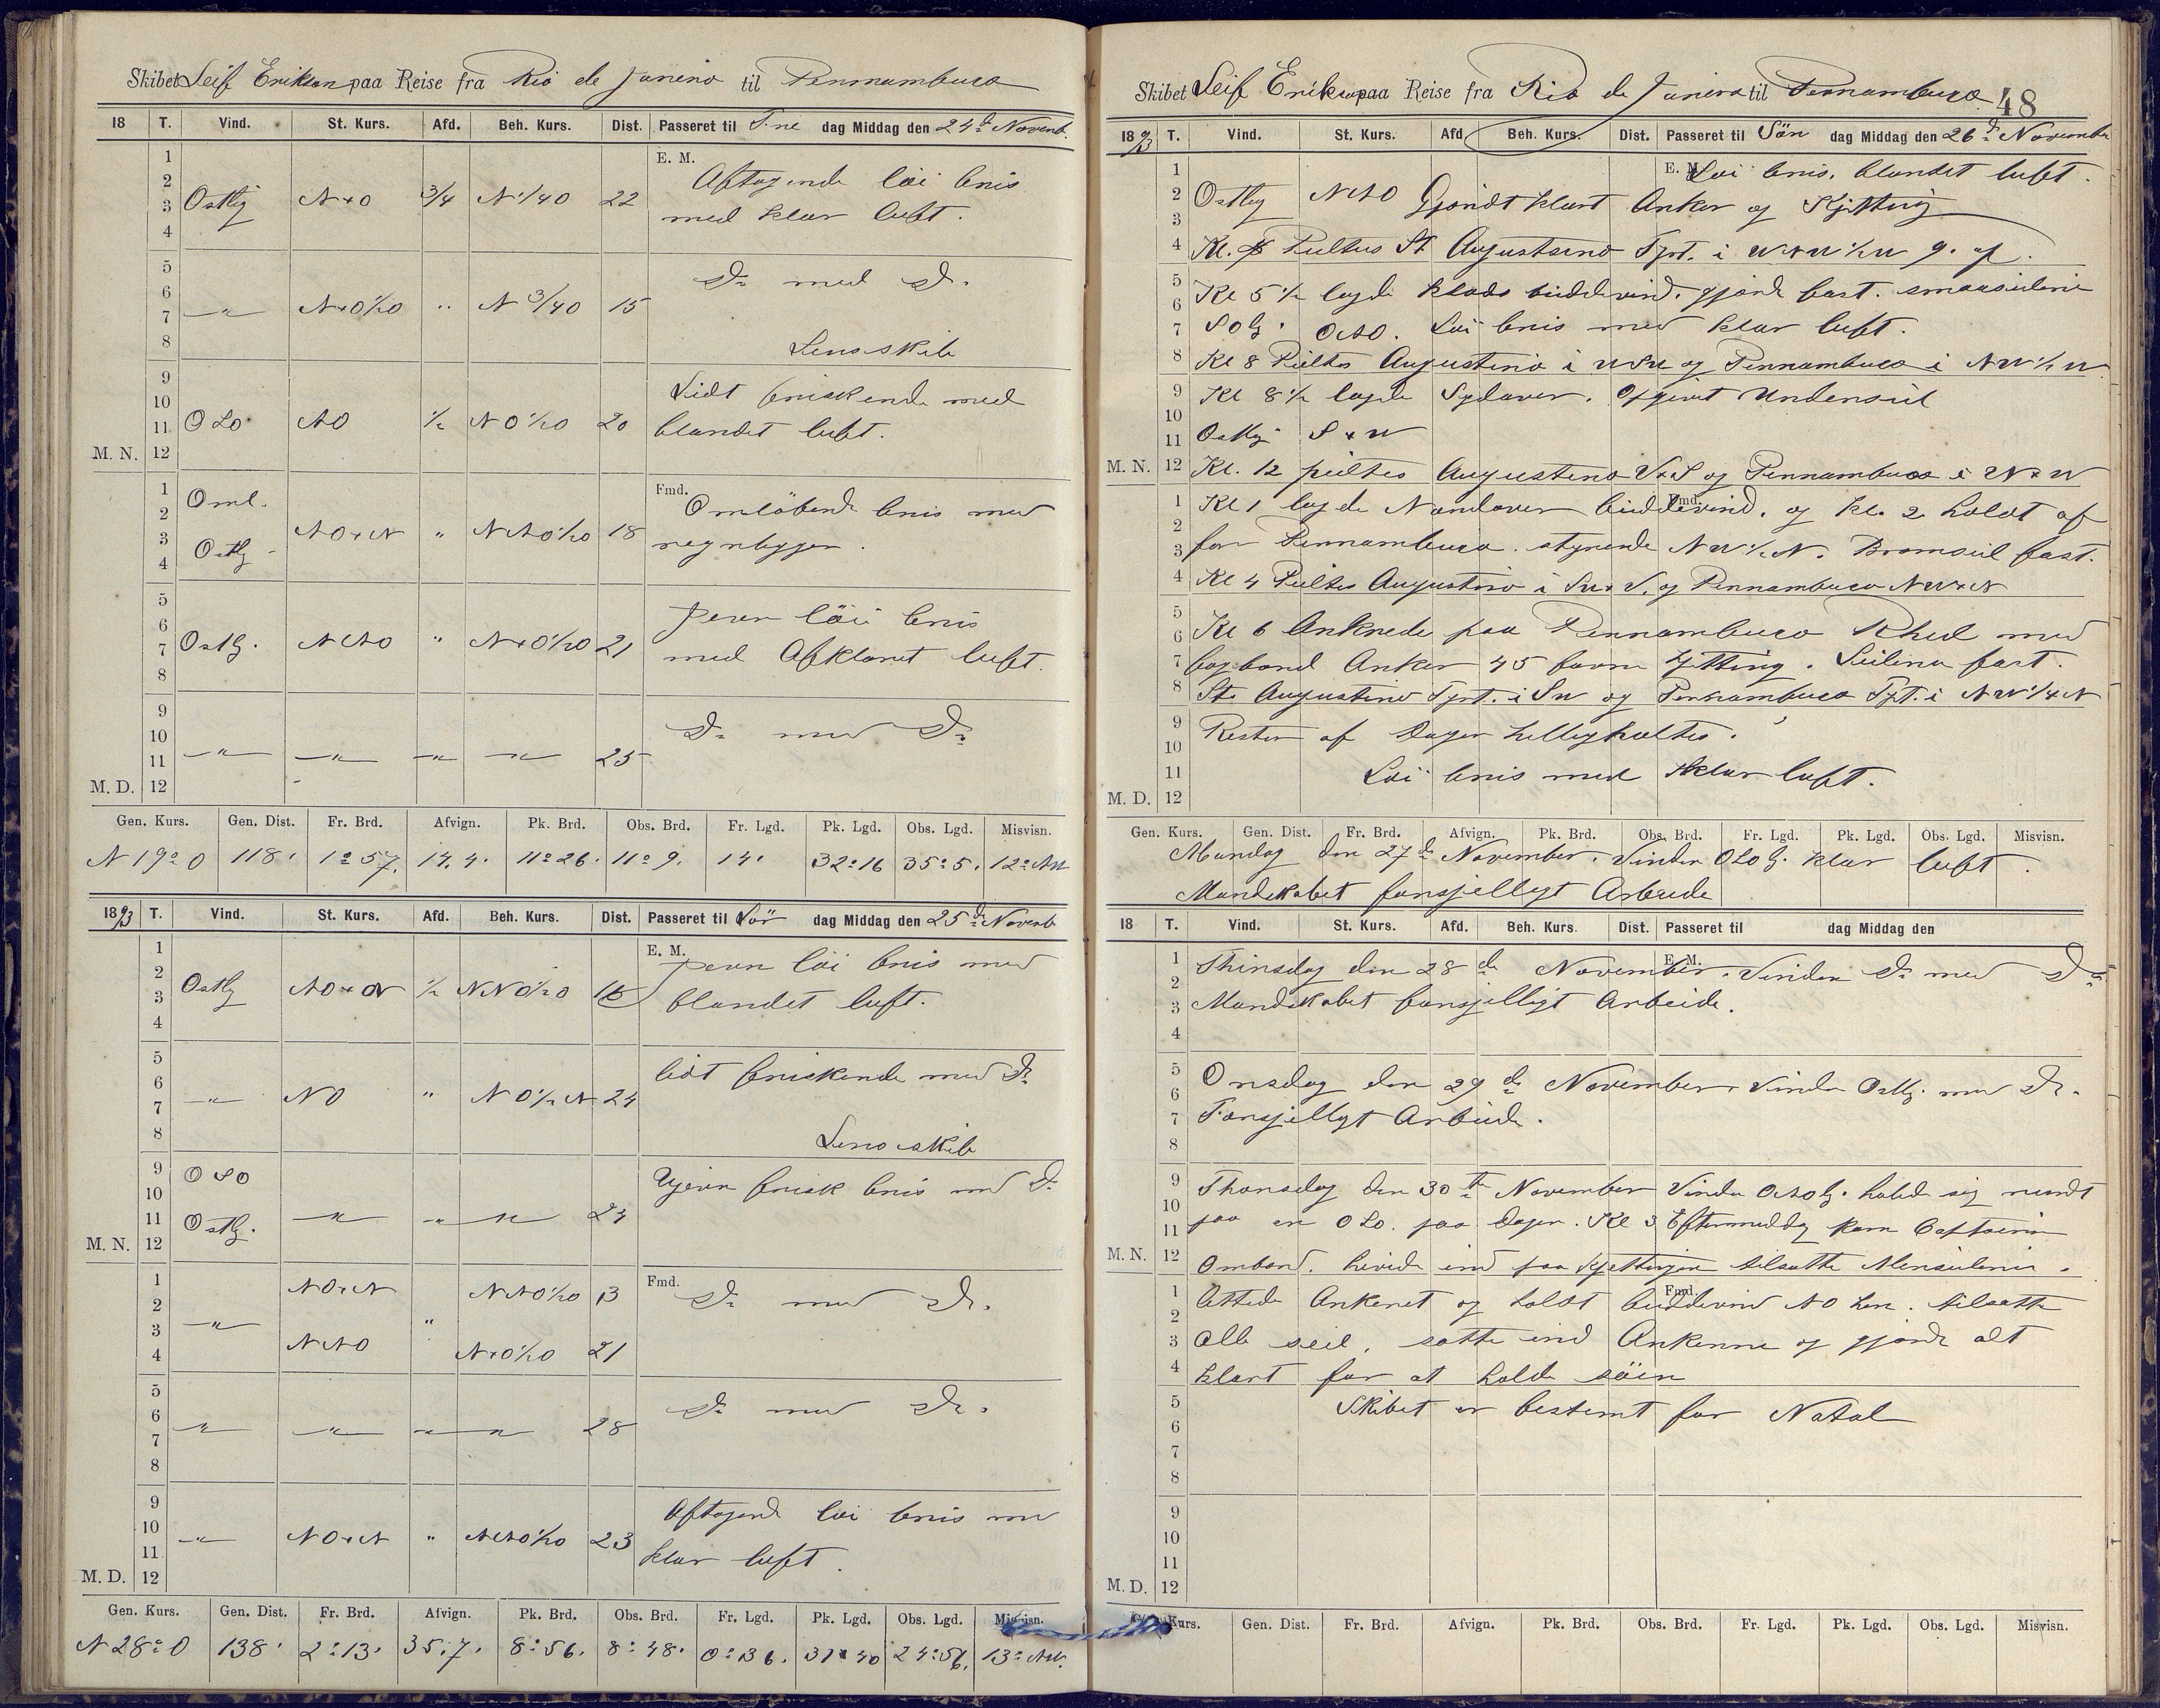 Skibet Leif Erikson paa Reise fra Rio de Janeiro til Pernambuco
18 T. Vind. St. Kurs. Afd. Beh. Kurs. Dist. Passeret til Fre dag Middag den 24d Novemb.
E. M.
1
2 Aftagende löi bris
3 Ostlig N+O 3/4 N 1/4 O 22 med klar luft.
4
5 Do med Do.
6
7 " N+O½O " N 3/4 O 15
8 Lenseskib
9 Lidt friskende med
10
11 OSO NO ½ NO½O 20 blandet luft.
M. N. 12
Fmd.
1 Oml. Omlöbende bris med
2
3 Ostlig NO+N " NNO½O 18 regnbyger.
4
5 jevn löi bris
6
7 Ostlg. NNO " N+O½O 21 med Afklaret luft.
8
9 Do med Do
10
11 " " " " 25
M. D. 12
Gen. Kurs. Gen. Dist. Fr. Brd. Afvign. Pk. Brd. Obs. Brd. Fr. Lgd. Pk. Lgd. Obs. Lgd. Misvisn.
N 19° O 118' 1° 57. 14.4. 11° 26. 11° 9. 14' 32° 16 35° 5. 12° NW
1893 T. Vind. St. Kurs. Afd. Beh. Kurs. Dist. Passeret til Lör dag Middag den 25d Novemb
E. M.
1 jevn löi bris med
2
3 Ostlg NO+N ½ 16 blandet luft.
4
5 lidt friskende med Do
6
7 " NO " NO½N 24
8 Lenseskib
9 OSO Ujevn frisk bris med Do
10
11 Ostlg. " " " 24
M. N. 12
Fmd.
1 NO+N NNO½O 13 Do med Do.
2
3 " "
4 NNO N+O½O 21
5 Do med Do.
6
7 " " " " 28
8
9 Aftagend löi bris med
10
11 " NO+N " NNO½O 23 klar luft.
M. D. 12
Gen. Kurs. Gen. Dist. Fr. Brd. Afvign. Pk. Brd. Obs. Brd. Fr. Lgd. Pk. Lgd. Obs. Lgd. Misvisn.
N 28° O 138' 2° 13' 35.7. 8° 56. 8° 48. 0° 36. 24° 56. 13° NW.
Skibet Leif Erikson paa Reise fra Rio de Janeiro til Pernambuco. 48
1893 T. Vind. St. Kurs. Afd. Beh. Kurs. Dist. Passeret til Sön dag Middag den 26d November
1 E. M. Löi bris. blandet luft.
2 Ostlig NNO Gjordt klart Anker og Kjetting
3
4 Kl. 4 Peiltes St Augustino Fyrt. i
5 Kl 5½ lagde bidevind. gjorde fast. smaaseilene
6
7 Solg. ONO. Löi bris med klar luft.
8 Kl 8 Peiltes Augustino i WSW og Pernambuco i NW½W
9 Kl 8½ lagde Sydover. Opgivet Underseil
10
11 Ostlig S+W
M. N. 12 Kl. 12 peiltes Augustino V+S og Pernambuco i N+W
1 Kl 1 lagde Nordover bidevind. og kl. 2 holdt af
Fmd.
2
3 for Pernambuco. styrende NW½N. Bramseil fast.
4 Kl 4 Peiltes Augustino i SW+S. og Pernambuco NW+N
5
6 Kl 6 Ankrede paa Pernambuco Rhed med
7 bagbord Anker 45 favne kjetting. Seilene fast.
8 St. Augustino Fyrt. i SW og Pernambuco Fyt. i NW¼N
9 Resten af Dagen helligholtes.
10
11 Löi bris med klar luft.
M. D. 12
Gen. Kurs. Gen. Dist. Fr. Brd. Afvign. Pk. Brd. Obs. Brd. Fr. Lgd. Pk. Lgd. Obs. Lgd. Misvisn.
Mandag den 27de November. Vinden OSOlg. klar luft.
Mandskabet forsjelligt Arbeide
18 T. Vind. St. Kurs. Afd. Beh. Kurs. Dist. Passeret til dag Middag den
E. M.
1 Thirsdag den 28de November. Vinden Do med Do
2
3 Mandskabet forsjelligt Arbeide.
4
5 Onsdag den 29de November. Vinden Ostlg. med Do.
6
7 Forsjelligt Arbeide.
8
9 Thorsdag den 30te November Vinden ONOlg. holdt sig rundt
10
11 paa en OSO. paa Dagen. Kl 3 Eftermiddag kom Captainen
M. N. 12 Ombord. hivede ind paa Kjettingen tilsatte Merseilene.
Fmd.
1 lettede Ankeret og holdt bidevind NO hen. tilsatte
2
3 alle seil. satte ind Ankerne og gjorde alt
4 klart for at holde söen
5 Skibet er bestemt for Natal
6
7
8
9
10
11
M. D. 12
Kurs. Gen. Dist. Fr. Brd. Afvign. Pk. Brd. Obs. Brd. Fr. Lgd. Pk. Lgd. Obs. Lgd. Misvisn.